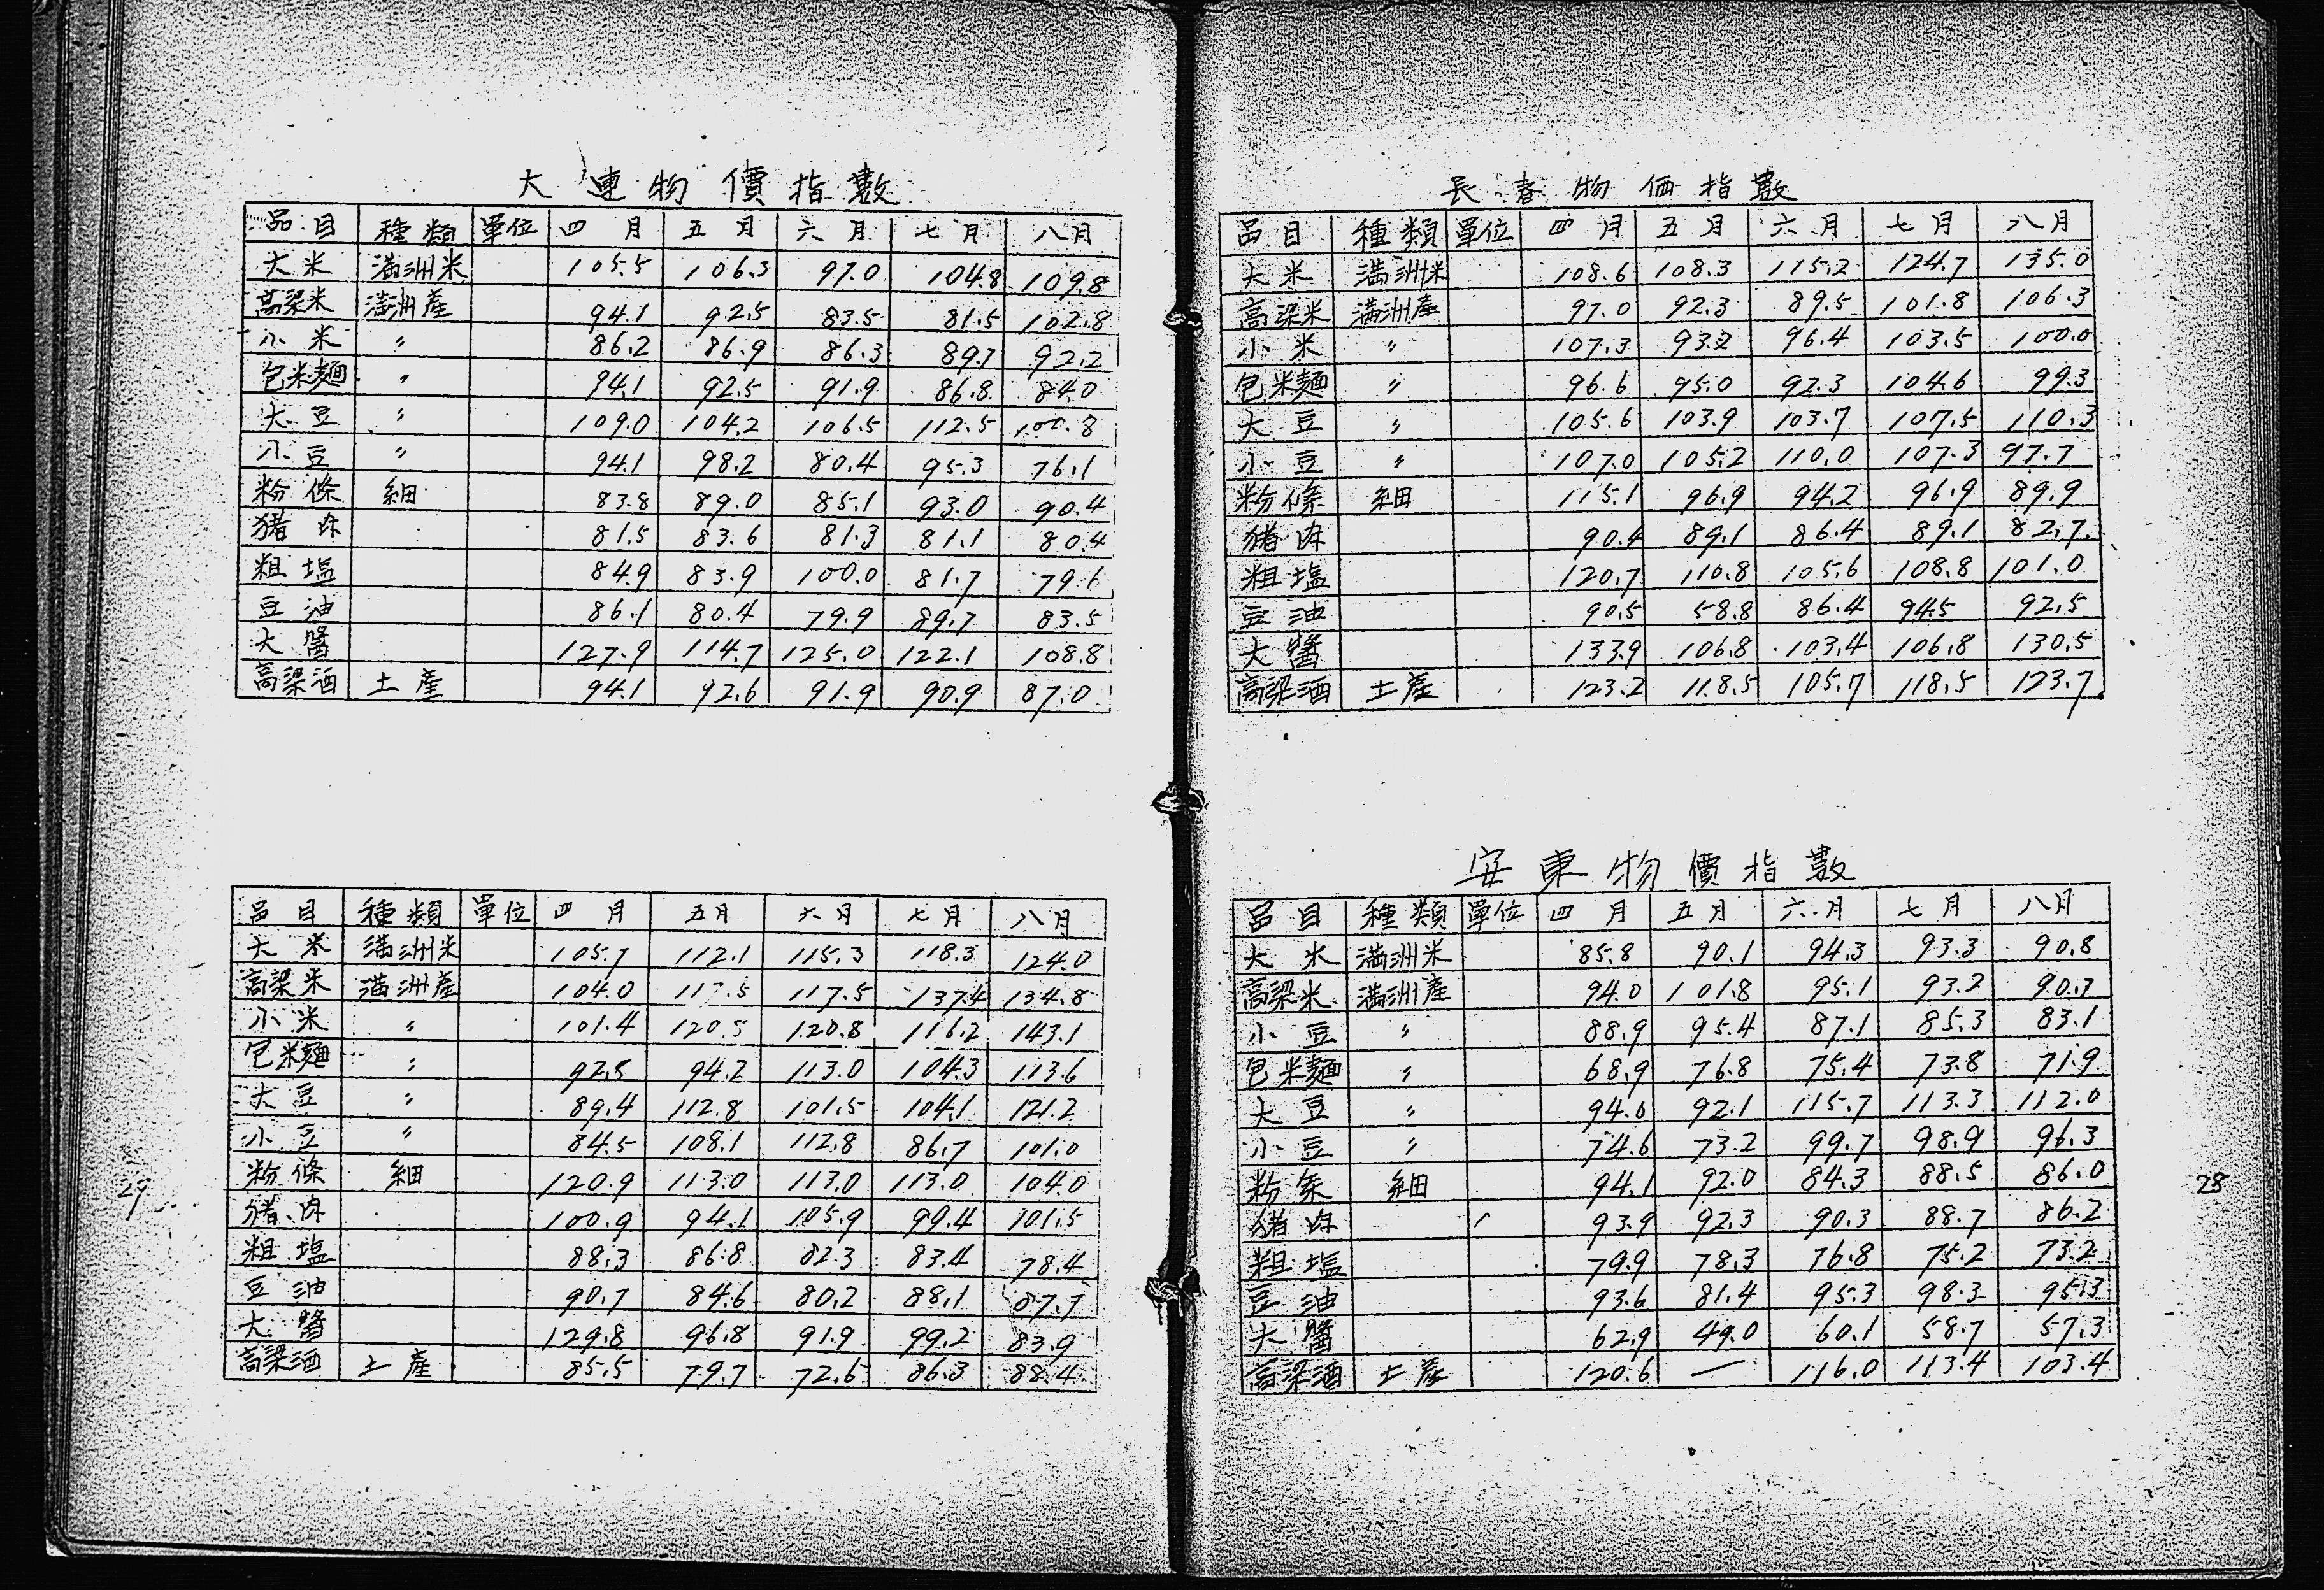 長春物価指數
品目 種類 單位 四月 五月 六月 七月 八月
大米 満洲米 108.6 108.3 115.2 124.7 135.0
高梁米 満洲産 97.0 92.3 89.5 101.8 106.3
小米 〃 107.3 93.2 96.4 103.5 100.0
包米麵 〃 96.6 95.0 92.3 104.6 99.3
大豆 〃 105.6 103.9 103.7 107.5 110.3
小豆 〃 107.0 105.2 110.0 107.3 97.7
粉條 細 115.1 96.9 94.2 96.9 89.9
猪肉 90.4 89.1 86.4 89.1 82.7
粗塩 120.7 110.8 105.6 108.8 101.0
豆油 90.5 58.8 86.4 94.5 92.5
大醬 133.9 106.8 103.4 106.8 130.5
高梁酒 土産 123.2 118.5 105.7 118.5 123.7
安東物價指數
品目 種類 單位 四月 五月 六月 七月 八月
大米 満洲米 85.8 90.1 94.3 93.3 90.8
高梁米 満洲産 94.0 101.8 95.1 93.2 90.7
小豆 〃 88.9 95.4 87.1 85.3 83.1
包米麵 〃 68.9 76.8 75.4 73.8 71.9
大豆 〃 94.6 92.1 115.7 113.3 112.0
小豆 〃 74.6 73.2 99.7 98.9 96.3
粉条 細 94.1 92.0 84.3 88.5 86.0
猪肉 93.9 92.3 90.3 88.7 86.2
粗塩 79.9 78.3 76.8 75.2 73.2
豆油 93.6 81.4 95.3 98.3 95.3
大醬 62.9 49.0 60.1 58.7 57.3
高梁酒 土産 120.6 — 116.0 113.4 103.4
28
大連物價指數
品目 種類 單位 四月 五月 六月 七月 八月
大米 満洲米 105.5 106.3 97.0 104.8 109.8
高梁米 満洲産 94.1 92.5 83.5 81.5 102.8
小米 〃 86.2 86.9 86.3 89.7 92.2
包米麵 〃 94.1 92.5 91.9 86.8 84.0
大豆 〃 109.0 104.2 106.5 112.5 100.8
小豆 〃 94.1 98.2 80.4 95.3 76.1
粉條 細 83.8 89.0 85.1 93.0 90.4
猪肉 81.5 83.6 81.3 81.1 80.4
粗塩 84.9 83.9 100.0 81.7 79.1
豆油 86.1 80.4 79.9 89.7 83.5
大醬 127.9 114.7 125.0 122.1 108.8
高梁酒 土産 94.1 92.6 91.9 90.9 87.0
品目 種類 單位 四月 五月 六月 七月 八月
大米 満洲米 105.7 112.1 115.3 118.3 124.0
高梁米 満洲産 104.0 117.5 117.5 137.4 134.8
小米 〃 101.4 120.5 120.8 116.2 143.1
包米麵 〃 92.5 94.2 113.0 104.3 113.6
大豆 〃 89.4 112.8 101.5 104.1 121.2
小豆 〃 84.5 108.1 112.8 86.7 101.0
粉條 細 120.9 113.0 113.0 113.0 104.0
猪肉 100.9 94.1 105.9 99.4 101.5
粗塩 88.3 86.8 82.3 83.4 78.4
豆油 90.7 84.6 80.2 88.1 87.7
大醬 129.8 96.8 91.9 99.2 83.9
高梁酒 土産 85.5 79.7 72.6 86.3 88.4
29